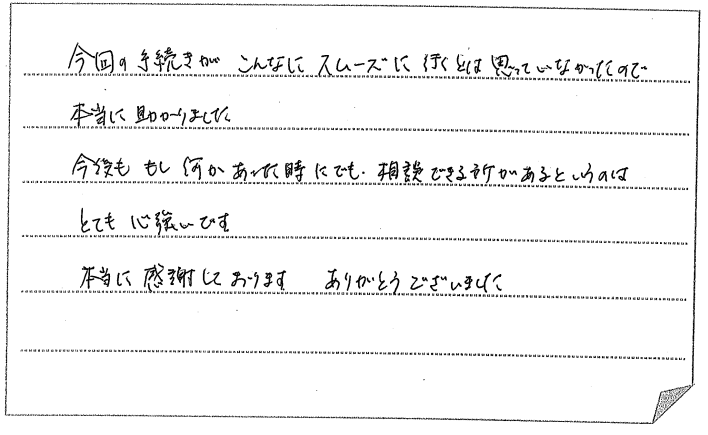 今回の手続きが こんなに スムーズに 行くとは思っていなかったので
本当に 助かりました
今後も もし 何か あった時にでも、相談できる所があるというのは
とても 心強いです
本当に 感謝して おります ありがとうございました